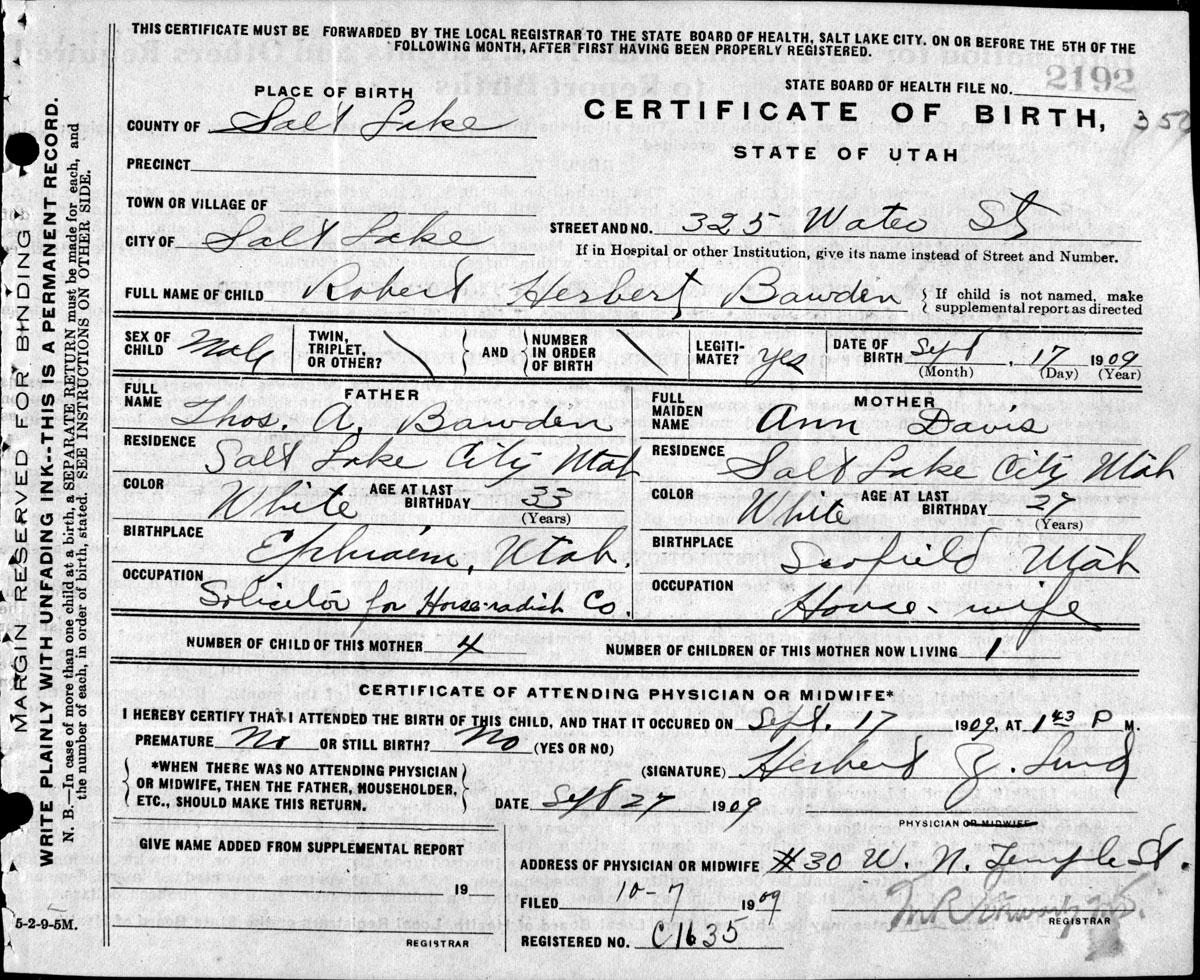 THIS CERTIFICATE MUST BE FORWARDED BY THE LOCAL REGISTRAR TO THE STATE BOARD OF HEALTH, SALT LAKE CITY, ON OR BEFORE THE 5TH OF THE
FOLLOWING MONTH, AFTER FIRST HAVING BEEN PROPERLY REGISTERED.
2192
STATE BOARD OF HEALTH FILE NO.
PLACE OF BIRTH
CERTIFICATE OF BIRTH, 353
COUNTY OF Salt Lake
STATE OF UTAH
PRECINCT
TOWN OR VILLAGE OF
CITY OF Salt Lake
STREET AND NO. 325 Water St
If in Hospital or other Institution, give its name instead of Street and Number.
FULL NAME OF CHILD Robert Herbert Bawden
If child is not named, make
supplemental report as directed
SEX OF CHILD Male
TWIN, TRIPLET, OR OTHER?
AND
NUMBER IN ORDER OF BIRTH
LEGITIMATE? yes
DATE OF BIRTH Sept, 17 1909
(Month) (Day) (Year)
FATHER
FULL NAME Thos. A. Bawden
RESIDENCE Salt Lake City Utah
COLOR White AGE AT LAST BIRTHDAY 33
(Years)
BIRTHPLACE Ephraim, Utah.
OCCUPATION Solicitor for Horse-radish Co.
MOTHER
FULL MAIDEN NAME Ann Davis
RESIDENCE Salt Lake City Utah
COLOR White AGE AT LAST BIRTHDAY 27
(Years)
BIRTHPLACE Scofield Utah
OCCUPATION House-wife
NUMBER OF CHILD OF THIS MOTHER 4
NUMBER OF CHILDREN OF THIS MOTHER NOW LIVING 1
CERTIFICATE OF ATTENDING PHYSICIAN OR MIDWIFE*
I HEREBY CERTIFY THAT I ATTENDED THE BIRTH OF THIS CHILD, AND THAT IT OCCURED ON Sept. 17 1909, AT 1 43 P M.
PREMATURE No OR STILL BIRTH? No (YES OR NO)
*WHEN THERE WAS NO ATTENDING PHYSICIAN
OR MIDWIFE, THEN THE FATHER, HOUSEHOLDER,
ETC., SHOULD MAKE THIS RETURN.
(SIGNATURE) Herbert Z. Lund
DATE Sept 27 1909
PHYSICIAN OR MIDWIFE
GIVE NAME ADDED FROM SUPPLEMENTAL REPORT
19
REGISTRAR
5-2-9-5M.
ADDRESS OF PHYSICIAN OR MIDWIFE #30 W. N. Temple St.
FILED 10-7 1909
REGISTRAR
REGISTERED NO. C1635
MARGIN RESERVED FOR BINDING
WRITE PLAINLY WITH UNFADING INK--THIS IS A PERMANENT RECORD.
N. B.—In case of more than one child at a birth, a SEPARATE RETURN must be made for each, and
the number of each, in order of birth, stated. SEE INSTRUCTIONS ON OTHER SIDE.